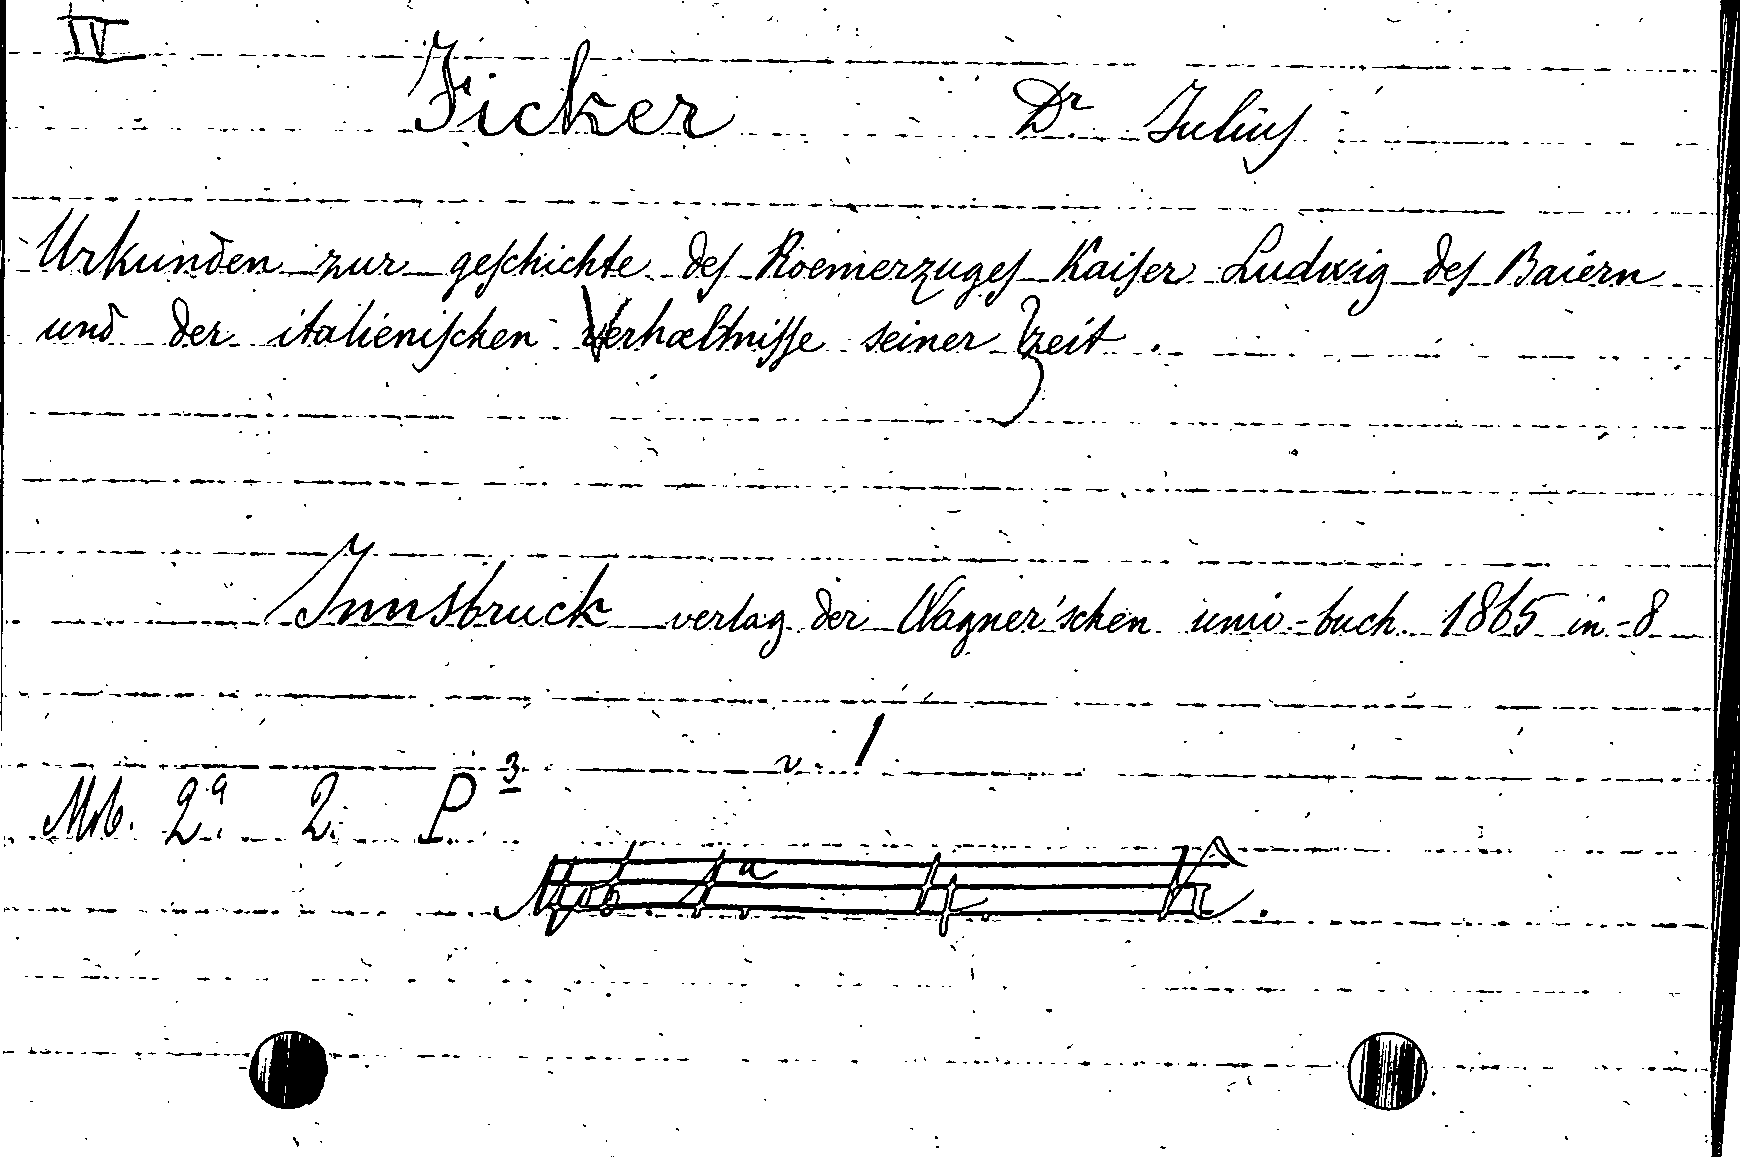 IV
Ficker Dr Julius
Urkunden zur geschichte des Roemerzuges Kaiser Ludwig des Baiern
und der italienischen Verhæltnisse seiner Zeit.
Innsbruck verlag der Wagner'schen univ-buch 1865 in-8
v. 1
Mob. 2.a 2. P 3
Mob. 1.a 4.